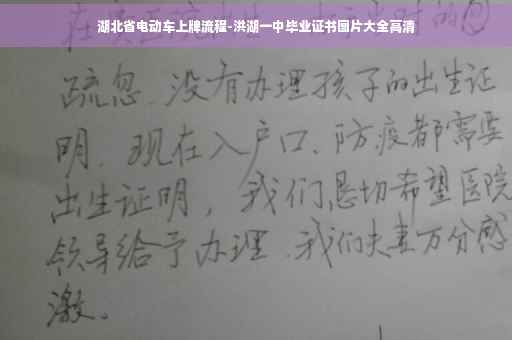 湖北省电动车上牌流程-洪湖一中毕业证书图片大全高清
疏忽、没有办理孩子的出生证
明、现在入户口、防疫都需要
出生证明，我们恳切希望医院
领导给予办理、我们夫妻万分感
激。